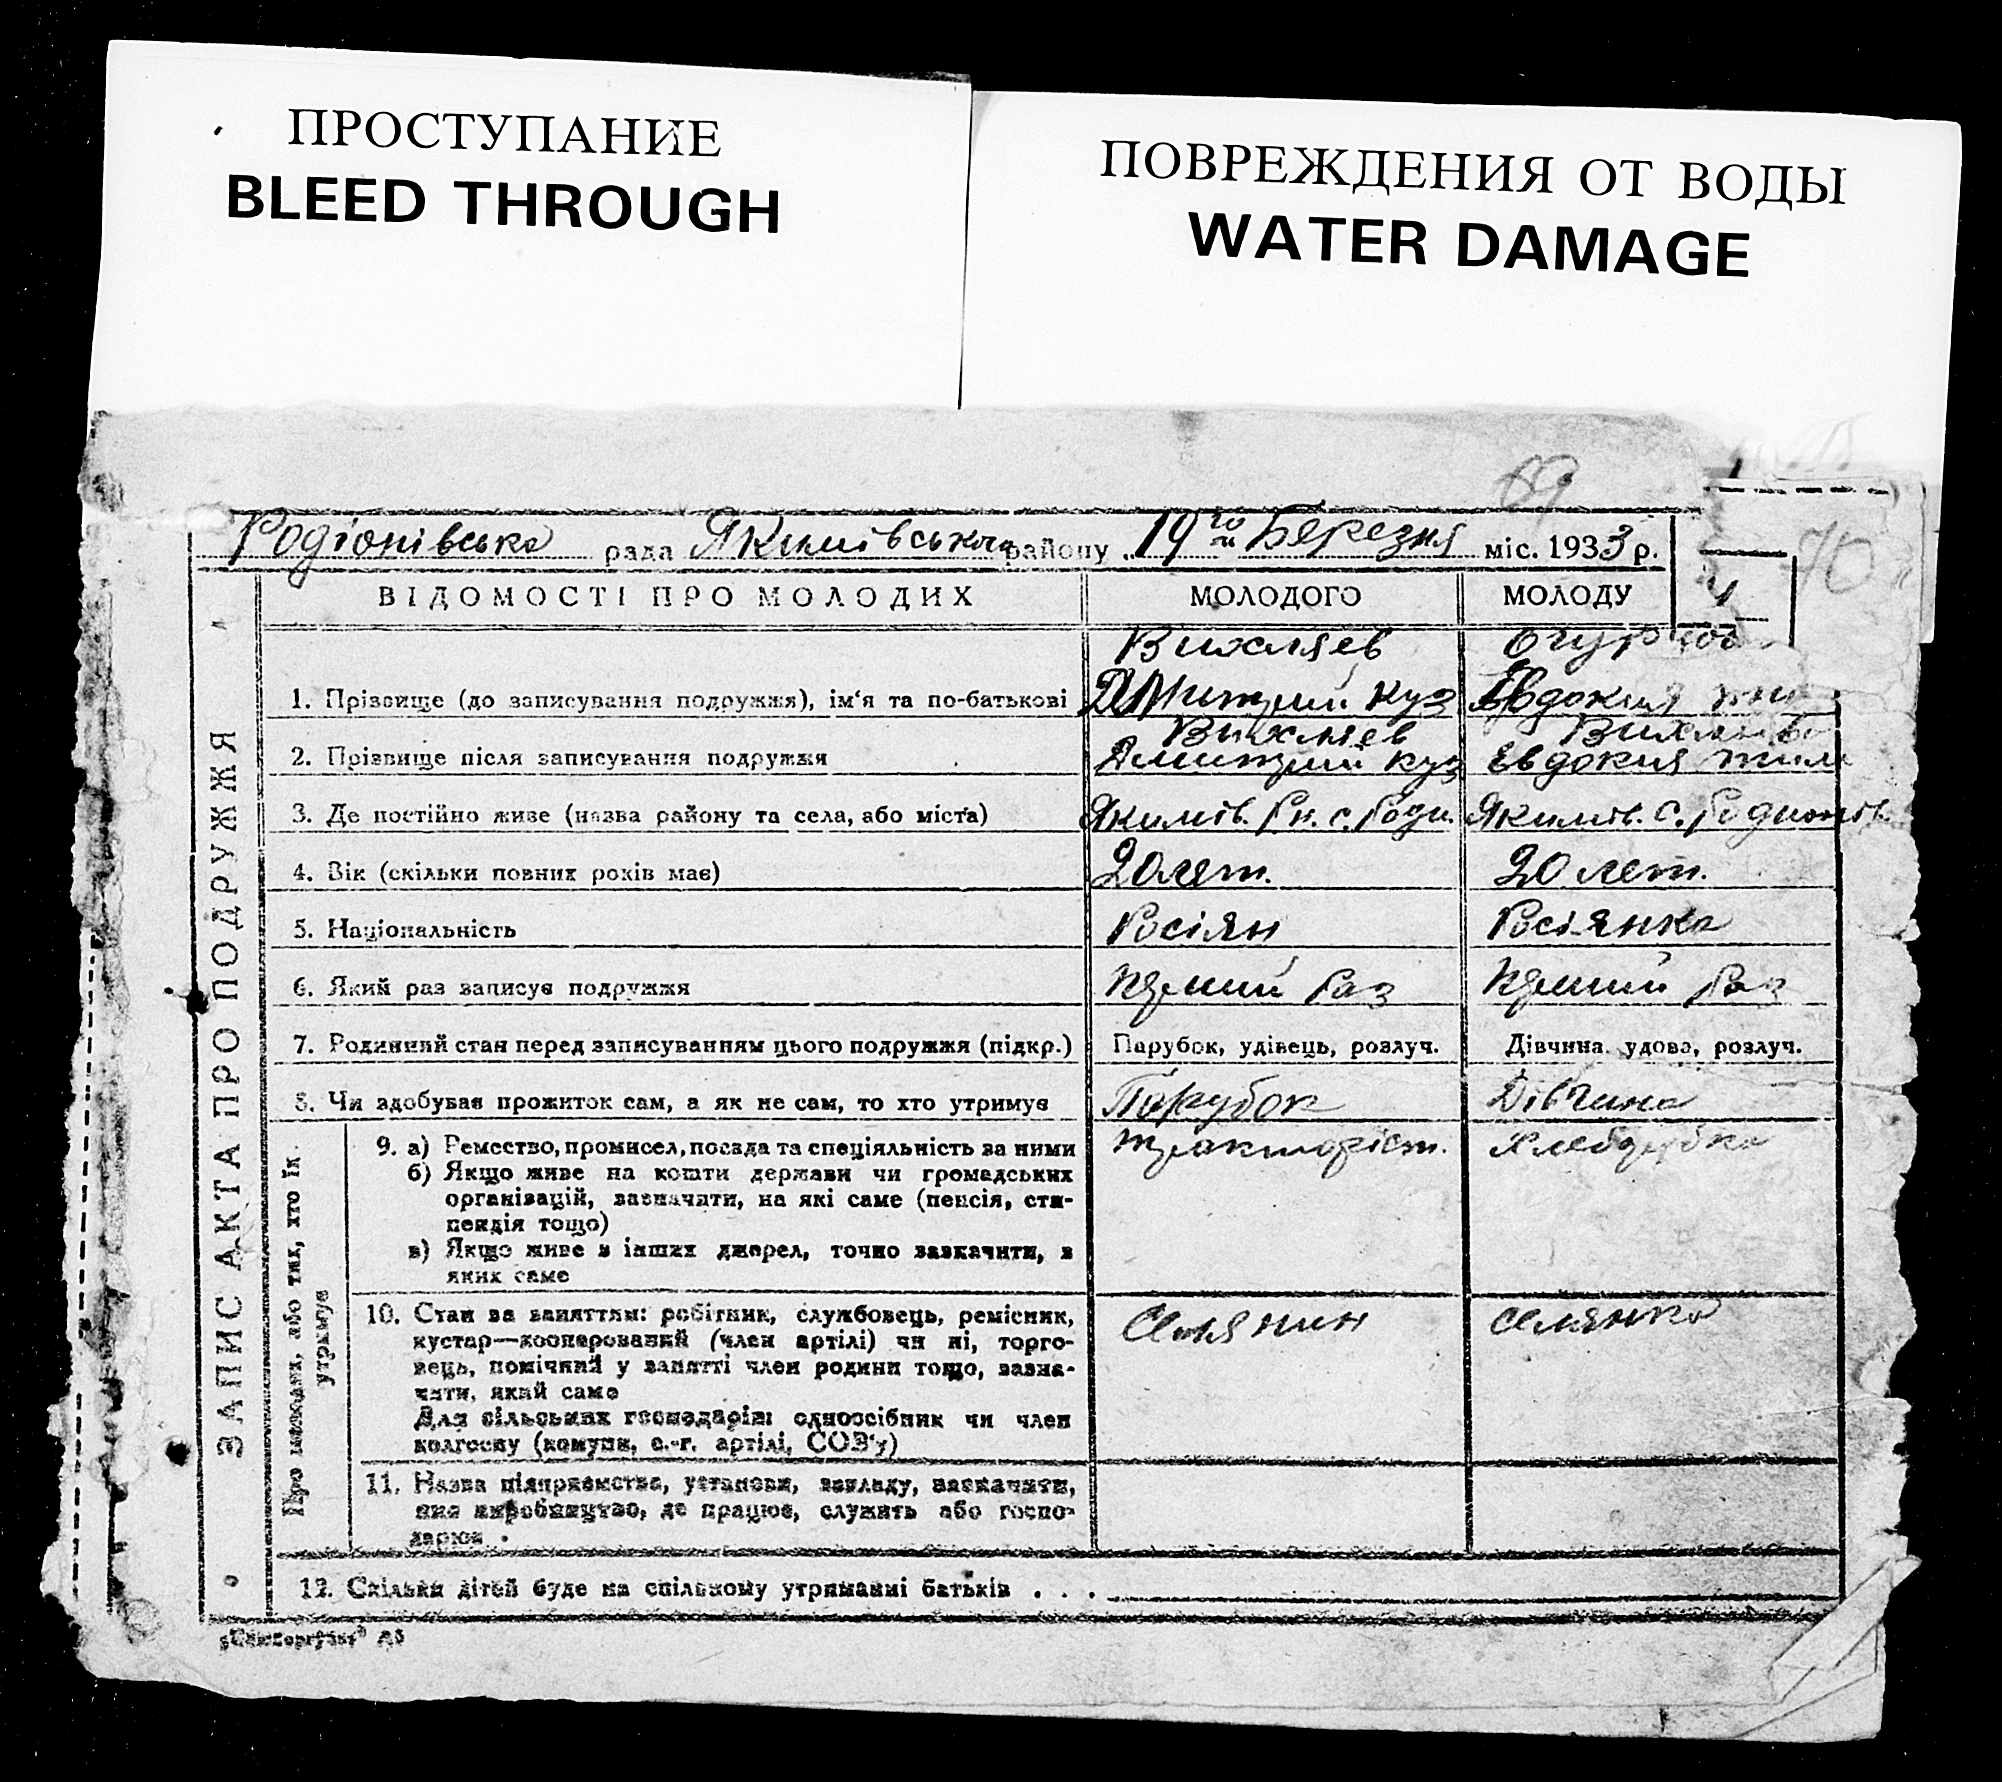 ПРОСТУПАНИЕ
BLEED THROUGH
ПОВРЕЖДЕНИЯ ОТ ВОДЫ
WATER DAMAGE
69
70
Родіонівська рада Якимівського району 19го Березня міс. 1933 р.
4
ЗАПИС АКТА ПРО ПОДРУЖЖЯ
ВІДОМОСТІ ПРО МОЛОДИХ МОЛОДОГО МОЛОДУ
Вихляев
1. Прізвище (до записування подружжя), ім'я та по-батькові Дмитрий Куз Евдокия
Вихляев
2. Прізвище після записування подружжя Дмитрий Куз Евдокия
3. Де постійно живе (назва району та села, або міста) Якимів. Рн. с. Роди. Якимів. с. Родионів.
4. Вік (скільки повних років має) 20 лет. 20 лет.
5. Національність Росіян Росіянка
6. Який раз записує подружжя перший раз перший раз
7. Родинний стан перед записуванням цього подружжя (підкр.) Парубок, удівець, розлуч. Дівчина, удова, розлуч.
8. Чи здобував прожиток сам, а як не сам, то хто утримує Парубок Дівчина
Про молодих, або тих, хто їх утримує
9. а) Ремество, промисел, посада та спеціяльність за ними тракторіст.
б) Якщо живе на кошти держави чи громадських
організацій, зазначити, на які саме (пенсія, сти-
пендія тощо)
в) Якщо живе з інших джерел, точно зазначити, з
яких саме
10. Стан за заняттям: робітник, службовець, ремісник, Селянин селянка
кустар—кооперований (член артілі) чи ні, торго-
вець, помічний у занятті член родини тощо, зазна-
чити, який саме
Для сільських господарів: одноосібник чи член
колгоспу (комуни, с.-г. артілі, СОЗ'у)
11. Назва підприємства, установи, закладу, зазначити,
яке виробництво, де працює, служить або госпо-
дарює .
12. Скільки дітей буде на спільному утриманні батьків . . .